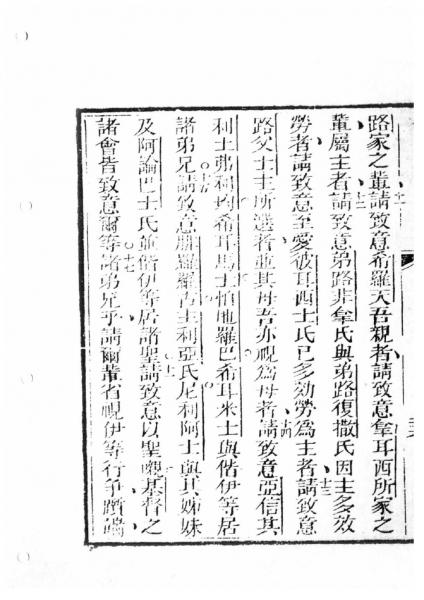 路家之輩請致意希羅天吾親者請致意拿耳西所家之
輩屬主者請致意弟路非拿氏與弟路復撒氏因主多效
勞者請致意至愛彼耳西士氏已多効勞為主者請致意
路父士主所選者並其母吾亦視為母者請致意亞信其
利士弗利均希耳馬士怕地羅巴希耳米士與偕伊等居
諸弟兄請致意腓羅羅古主利亞氏尼利阿士與其姊妹
及阿論巴士氏並偕伊等居諸聖請致意以聖嘴基督之
諸會皆致意爾等諸弟兄乎請爾輩省視伊等行爭躓端